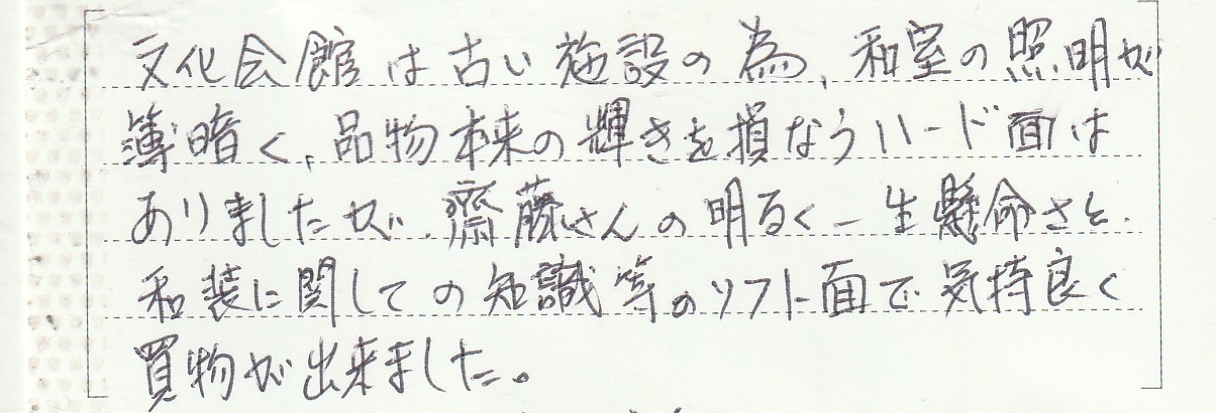 文化会館は古い施設の為、和室の照明が
薄暗く、品物本来の輝きを損なうハード面は
ありましたが、齋藤さんの明るく一生懸命さと、
和装に関しての知識等のソフト面で気持良く
買物が出来ました。